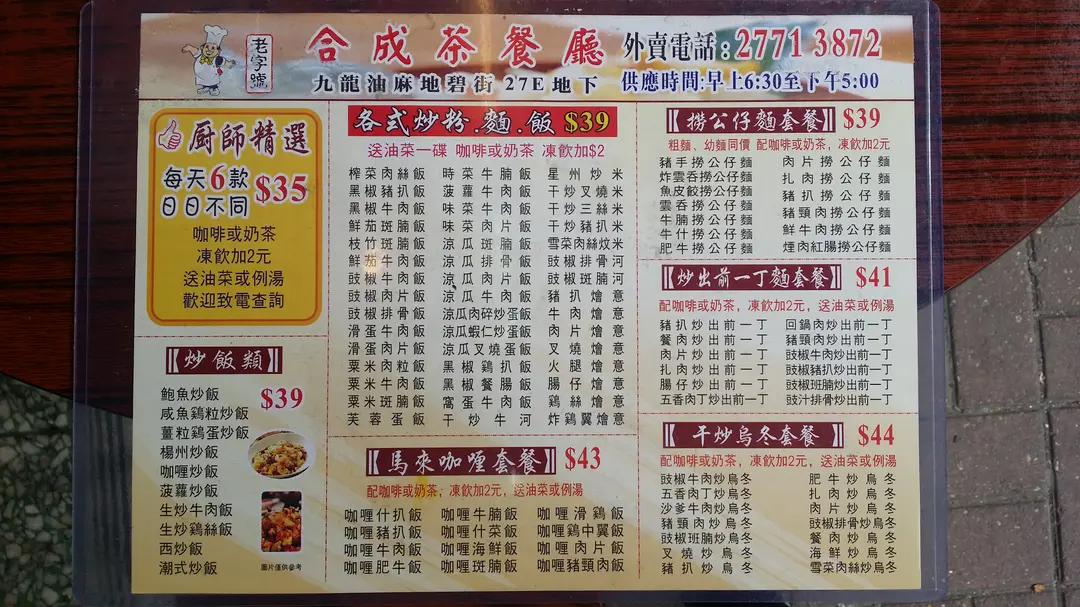 老字號
合成茶餐廳
外賣電話:2771 3872
九龍油麻地碧街27E地下
供應時間:早上6:30至下午5:00
厨師精選
每天6款
日日不同
$35
咖啡或奶茶
凍飲加2元
送油菜或例湯
歡迎致電查詢
炒飯類
$39
鮑魚炒飯
咸魚鷄粒炒飯
薑粒鷄蛋炒飯
楊州炒飯
咖喱炒飯
菠蘿炒飯
生炒牛肉飯
生炒鷄絲飯
西炒飯
潮式炒飯
圖片僅供參考
各式炒粉.麵.飯 $39
送油菜一碟 咖啡或奶茶 凍飲加$2
榨菜肉絲飯 時菜牛腩飯 星州炒米
黑椒豬扒飯 菠蘿牛肉飯 干炒叉燒米
黑椒牛肉飯 味菜牛肉飯 干炒三絲米
鮮茄斑腩飯 味菜肉片飯 干炒豬扒米
枝竹斑腩飯 涼瓜斑腩飯 雪菜肉絲炆米
鮮茄牛肉飯 涼瓜排骨飯 豉椒排骨河
豉椒牛肉飯 涼瓜肉片飯 豉椒斑腩河
豉椒肉片飯 涼瓜牛肉飯 豬扒燴意
豉椒排骨飯 涼瓜肉碎炒蛋飯 牛肉燴意
滑蛋牛肉飯 涼瓜蝦仁炒蛋飯 肉片燴意
滑蛋肉片飯 涼瓜叉燒蛋飯 叉燒燴意
粟米肉粒飯 黑椒鷄扒飯 火腿燴意
粟米牛肉飯 黑椒餐腸飯 腸仔燴意
粟米斑腩飯 窩蛋牛肉飯 鷄絲燴意
芙蓉蛋飯 干炒牛河 炸鷄翼燴意
【馬來咖喱套餐】 $43
配咖啡或奶茶，凍飲加2元，送油菜或例湯
咖喱什扒飯 咖喱牛腩飯 咖喱滑鷄飯
咖喱豬扒飯 咖喱什菜飯 咖喱鷄中翼飯
咖喱牛肉飯 咖喱海鮮飯 咖喱肉片飯
咖喱肥牛飯 咖喱斑腩飯 咖喱豬頸肉飯
【撈公仔麵套餐】 $39
粗麵、幼麵同價 配咖啡或奶茶，凍飲加2元
豬手撈公仔麵 肉片撈公仔麵
炸雲吞撈公仔麵 扎肉撈公仔麵
魚皮餃撈公仔麵 豬扒撈公仔麵
雲吞撈公仔麵 豬頸肉撈公仔麵
牛腩撈公仔麵 鮮牛肉撈公仔麵
牛什撈公仔麵 煙肉紅腸撈公仔麵
肥牛撈公仔麵
【炒出前一丁麵套餐】 $41
配咖啡或奶茶，凍飲加2元，送油菜或例湯
豬扒炒出前一丁 回鍋肉炒出前一丁
餐肉炒出前一丁 豬頸肉炒出前一丁
肉片炒出前一丁 豉椒牛肉炒出前一丁
扎肉炒出前一丁 豉椒豬扒炒出前一丁
腸仔炒出前一丁 豉椒斑腩炒出前一丁
五香肉丁炒出前一丁 豉汁排骨炒出前一丁
【干炒烏冬套餐】 $44
配咖啡或奶茶，凍飲加2元，送油菜或例湯
豉椒牛肉炒烏冬 肥牛炒烏冬
五香肉丁炒烏冬 扎肉炒烏冬
沙爹牛肉炒烏冬 肉片炒烏冬
豬頸肉炒烏冬 豉椒排骨炒烏冬
豉椒斑腩炒烏冬 餐肉炒烏冬
叉燒炒烏冬 海鮮炒烏冬
豬扒炒烏冬 雪菜肉絲炒烏冬